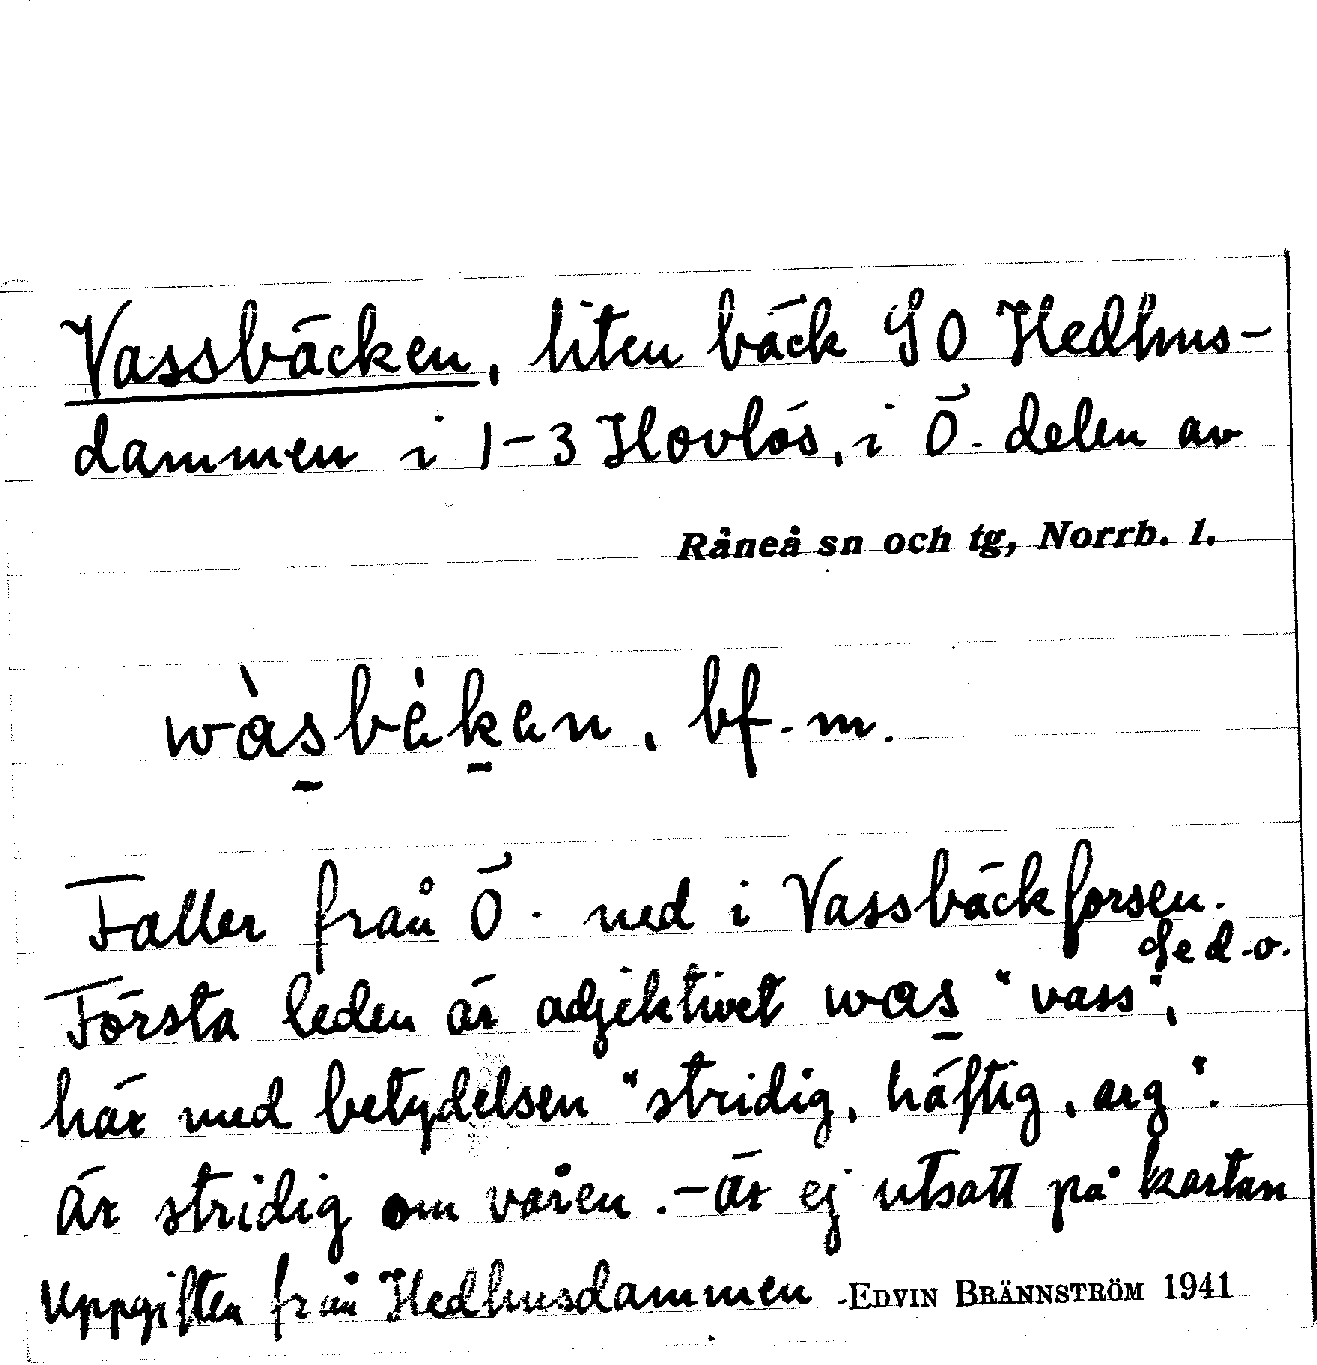 Vassbäcken, liten bäck SO Hedhus-
dammen i 1-3 Hovlös, i Ö. delen av
Råneå sn och tg, Norrb. l.
wàsbèken, bf. m.
Faller från Ö. ned i Vassbäckforsen.
Se d.o.
Första leden är adjektivet was "vass",
här med betydelsen "stridig, häftig, arg".
Är stridig om våren. - Är ej utsatt på kartan
Uppgiften från Hedhusdammen - EDVIN BRÄNNSTRÖM 1941